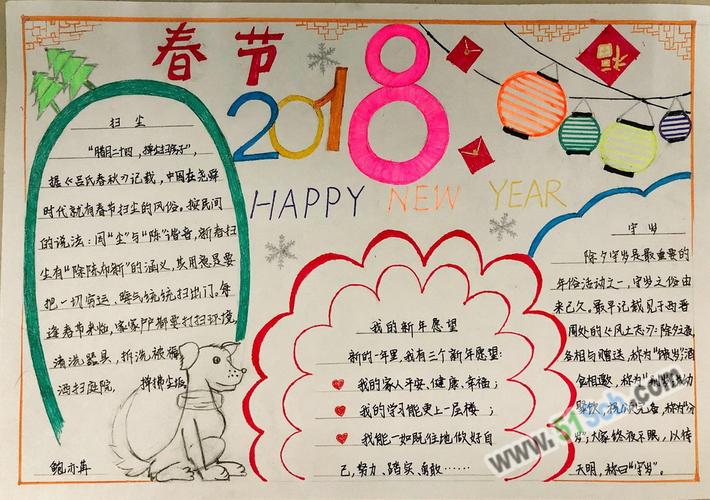 春节
2018
HAPPY NEW YEAR
福
扫尘
“腊月二十四，掸尘扫房子”，
据《吕氏春秋》记载，中国在尧舜
时代就有春节扫尘的风俗。按民间
的说法：因“尘”与“陈”谐音，新春扫
尘有“除陈布新”的涵义，其用意是要
把一切穷运、晦气统统扫出门。每
逢春节来临，家家户户都要打扫环境，
清洗器具，拆洗被褥
洒扫庭院，掸拂尘垢
我的新年愿望
新的一年里，我有三个新年愿望：
我的家人平安、健康、幸福；
我的学习能更上一层楼；
我能一如既往地做好自
己，努力、踏实、勇敢……
守岁
除夕守岁是最重要的
年俗活动之一，守岁之俗由
来已久。最早记载见于西晋
周处的《风土志》：除夕之夜
各相与赠送，称为“馈岁”酒
食相邀，称为
聚饮，祝颂完备，称为“分
岁”，大家终夜不眠，以待
天明，称曰“守岁”。
鲍亦冉
www.51sch.com